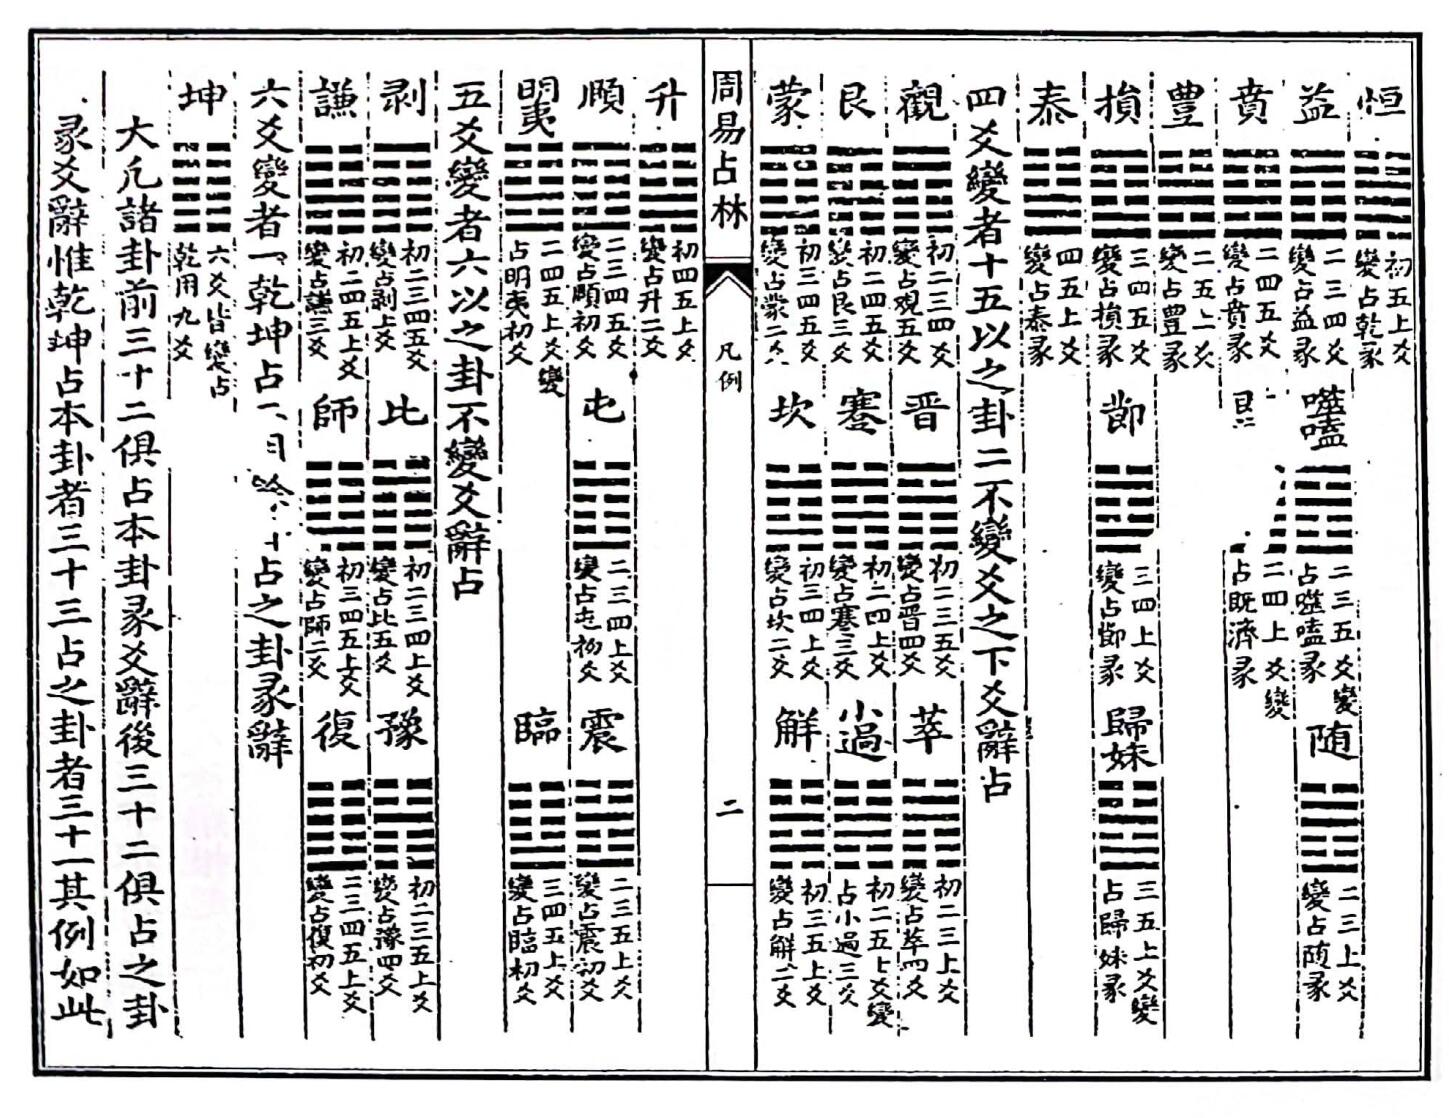 恒 初五上爻變占乾彖
益 二三四爻變占益彖 噬嗑 二三五爻變占噬嗑彖 随 二三上爻變占随彖
賁 二四五爻變占賁彖 二四上爻變占既濟彖
豊 二五上爻變占豊彖
損 三四五爻變占損彖 節 三四上爻變占節彖 歸妹 三五上爻變占歸妹彖
泰 四五上爻變占泰彖
四爻變者十五以之卦二不變爻之下爻辭占
觀 初二三四爻變占觀五爻 晋 初二三五爻變占晋四爻 萃 初二三上爻變占萃四爻
艮 初二四五爻變占艮三爻 蹇 初二四上爻變占蹇三爻 小過 初二五上爻變占小過三爻
蒙 初三四五爻變占蒙二爻 坎 初三四上爻變占坎二爻 解 初三五上爻變占解二爻
周易占林 凡例 二
升 初四五上爻變占升二爻
頤 二三四五爻變占頤初爻 屯 二三四上爻變占屯初爻 震 二三五上爻變占震初爻
明夷 二四五上爻變占明夷初爻 臨 三四五上爻變占臨初爻
五爻變者六以之卦不變爻辭占
剥 初二三四五爻變占剥上爻 比 初二三四上爻變占比五爻 豫 初二三五上爻變占豫四爻
謙 初二四五上爻變占謙三爻 師 初三四五上爻變占師二爻 復 二三四五上爻變占復初爻
六爻變者一乾坤占 占之卦彖辭
坤 六爻皆變占乾用九爻
大凡諸卦前三十二俱占本卦彖爻辭後三十二俱占之卦
彖爻辭惟乾坤占本卦者三十三占之卦者三十一其例如此